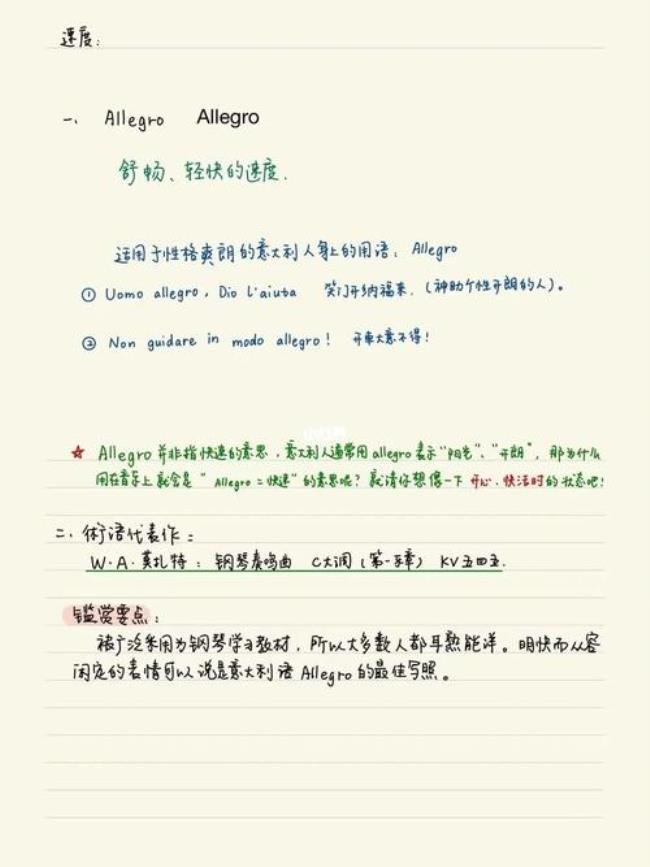 速度:
一、 Allegro Allegro
舒畅、轻快的速度.
适用于性格爽朗的意大利人身上的用语: Allegro
① Uomo allegro, Dio l'aiuta 笑门开纳福来.(神助个性开朗的人)。
② Non guidare in modo allegro! 开车大意不得!
☆ Allegro 并非指快速的意思,意大利人通常用 allegro 表示"阳光"、"开朗",那为什么
用在音乐上就会是"Allegro = 快速"的意思呢?就请你想像一下 开心、快活时的状态吧!
二、術语代表作:
W.A.莫扎特: 钢琴奏鸣曲 C大调(第一乐章) KV五四五.
鉴赏要点:
被广泛采用为钢琴学习教材,所以大多数人都耳熟能详。明快而从容
闲定的表情可以说是意大利语 Allegro 的最佳写照。